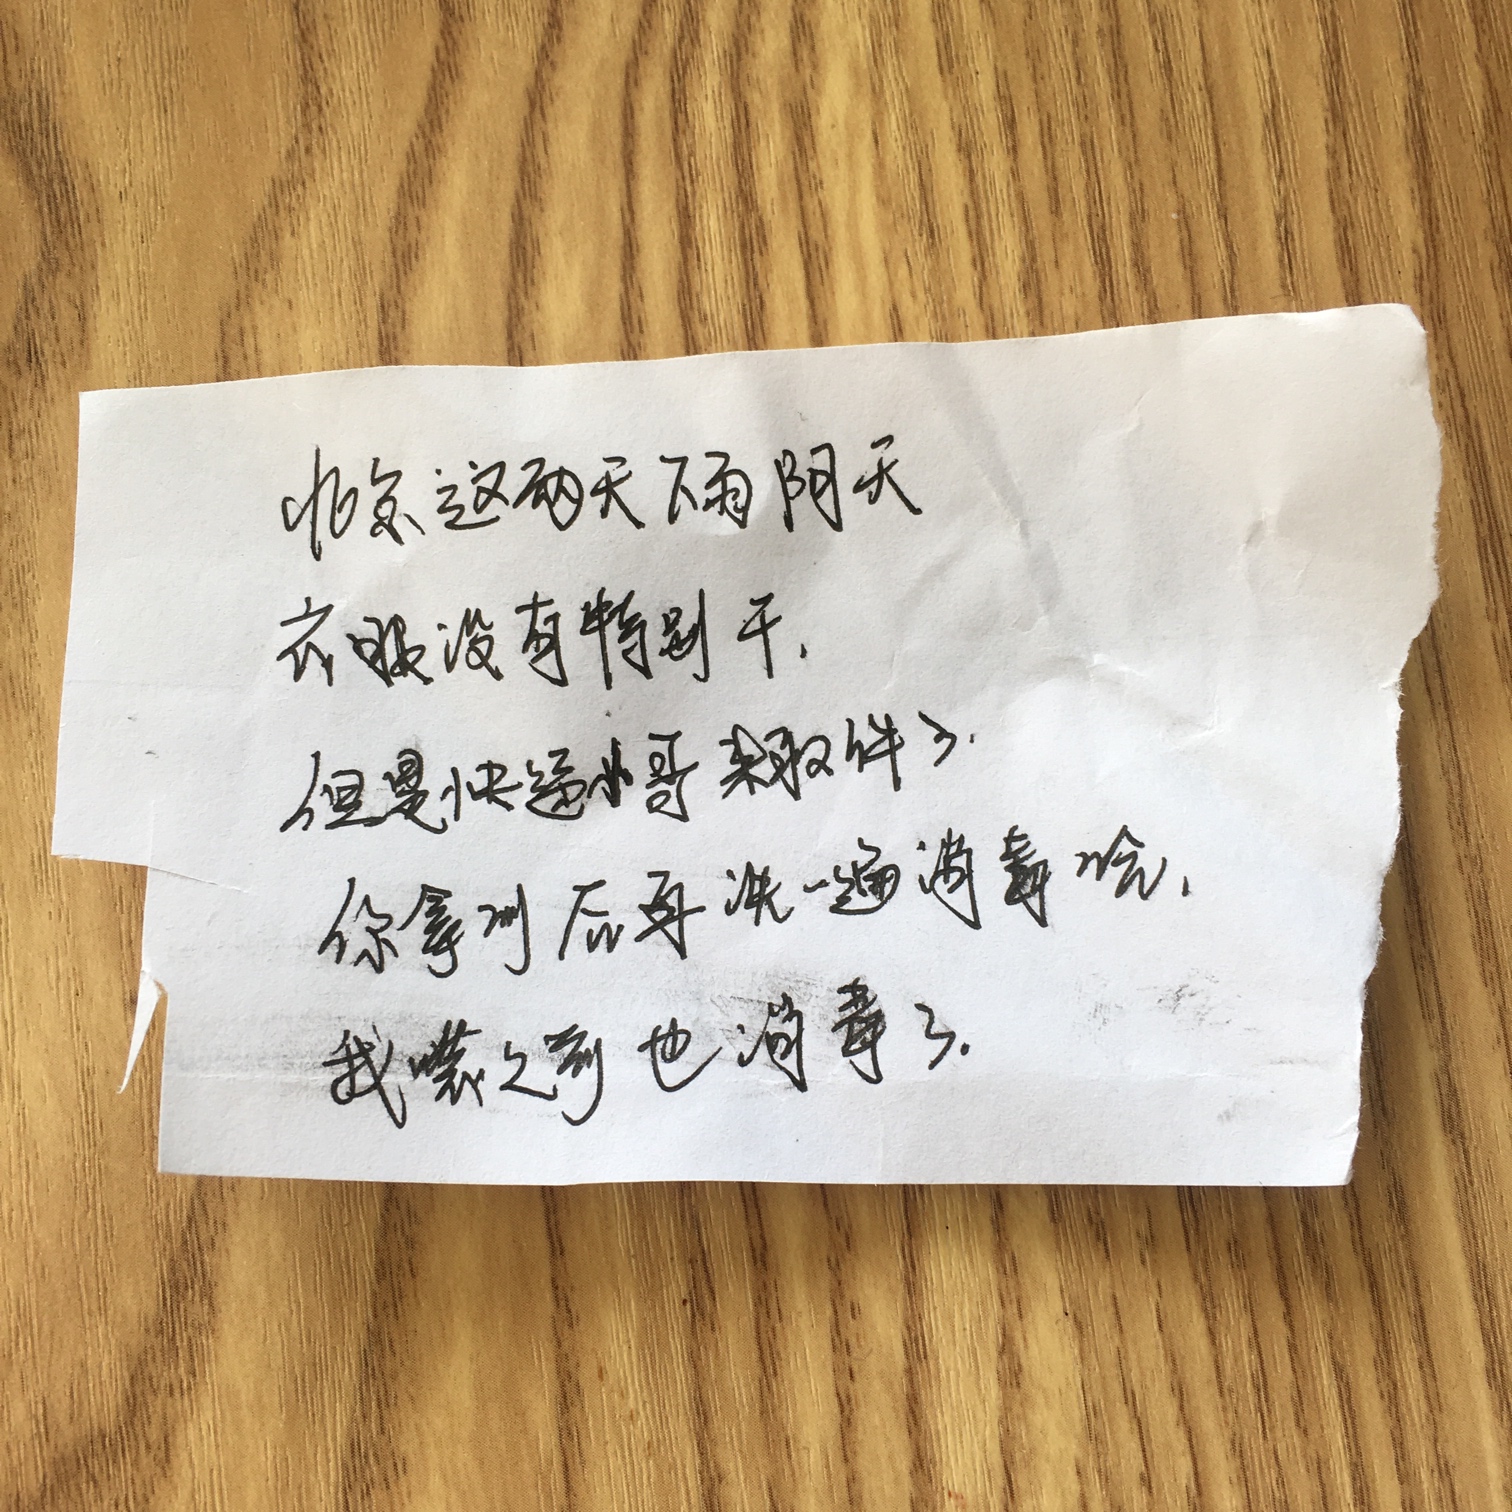 北京这两天下雨阴天
衣服没有特别干.
但是快递小哥来取件了.
你拿到后再洗一遍消毒哈.
我装之前也消毒了.